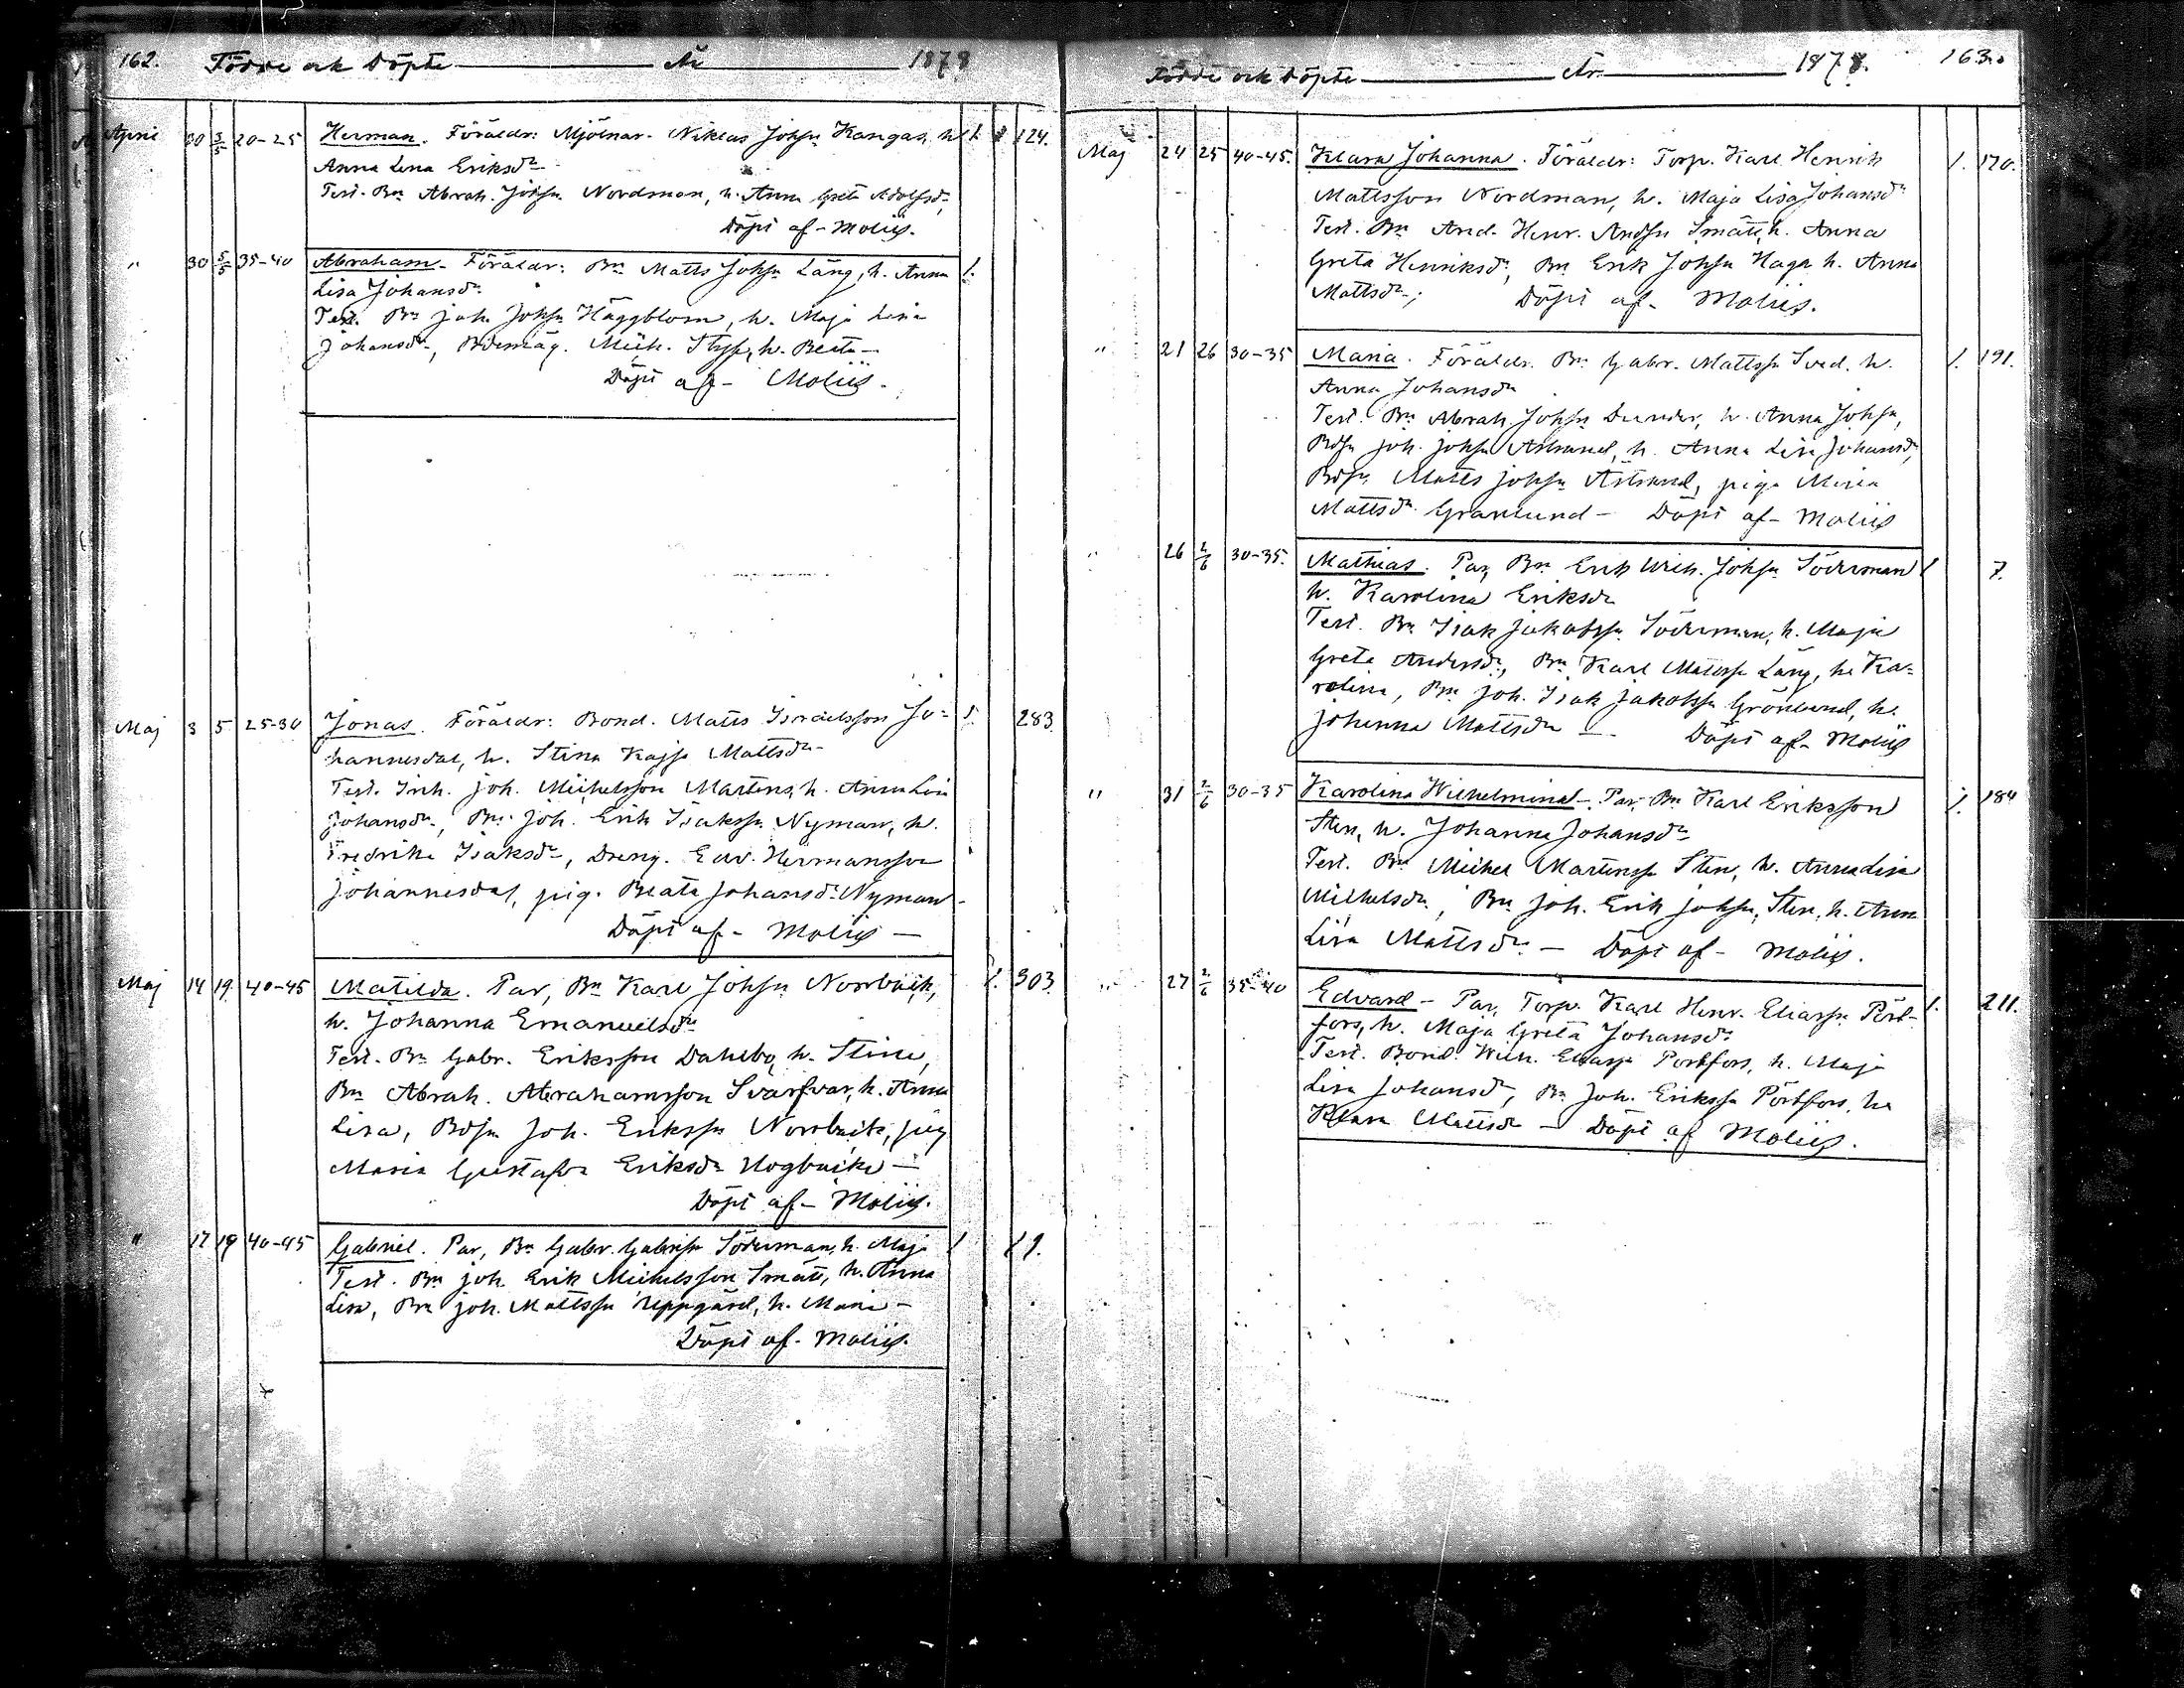 162. Födde och Döpte År 1878
April 30 5/5 20-25 Herman. Föräldr: Mjölnar. Niklas Johsn Kangas, h. 1. 124.
Anna Lena Eriksdr
Test. Bn Abrah. Johsn Nordman, h. Anna Greta Adolfsdr,
Döpt af - Moliis.
" 30 5/5 35-40 Abraham. Föräldr: Bn Matts Johsn Lång, h. Anna 1.
Lisa Johansdr
Test. Bn Joh. Johsn Häggblom, h. Maja Lisa
Johansdr, Mich. h. Beata -
Döpt af - Moliis.
Maj 3 5 25-30 Jonas. Föräldr: Bond. Matts Israelsson Jo- 1. 283.
hannesdal, h. Stina Kajsa Mattsdr
Test. Inh. Joh. Michelsson Martens, h. Anna Lisa
Johansdr, Bn Joh. Erik Isakssn Nyman, h.
Fredrika Isaksdr, Dreng. Edv. Hermansson
Johannesdal, pig. Beata Johansdr Nyman -
Döpt af - Moliis -
Maj 14 19. 40-45 Matilda. Par, Bn Karl Johsn Norrbäck, 1. 303.
h. Johanna Emanuelsdr
Test. Bn Gabr. Eriksson Dahlbo, h. Stina,
Bn Abrah. Abrahamsson Svarfvar, h. Anna
Lisa, Bdsn Joh. Erikssn Norrbäck, pig
Maria Gustafva Eriksdr Högbacka -
Döpt af - Moliis.
" 17 19 40-45 Gabriel. Par, Bn Gabr. Gabrssn Söderman, h. Maja 1 81.
Test. Bn Joh. Erik Michelsson Smått, h. Anna
Lisa, Bn Joh. Mattssn Uppgård, h. Maria -
Döpt af - Moliis.
Födde och Döpte År. 1878. 163.
Maj 24 25 40-45. Klara Johanna. Föräldr: Torp. Karl Henrik 1. 170.
Mattsson Nordman, h. Maja Lisa Johansdr
Test. Bn And. Henr. Andsn Smått, h. Anna
Greta Henriksdr, Bn Erik Johsn Haga, h. Anna
Mattsdr; Döpt af - Moliis.
" 21 26 30-35 Maria. Föräldr. Bn Gabr. Mattssn Sved, h. 1. 191.
Anna Johansdr
Test. Bn Abrah. Johsn Dunder, h. Anna Johsn,
Bdsn Joh. Johsn Åstrand, h. Anna Lisa Johansdr,
Bdsn Matts Johsn Åstrand, piga Maria
Mattsdr Granlund - Döpt af - Moliis
" 26 2/6 30-35. Mathias. Par, Bn Erik Wilh. Johsn Söderman 1 7.
h. Karolina Eriksdr
Test. Bn Isak Jakobssn Söderman, h. Maja
Greta Andersdr, Bn Karl Mattssn Lång, h. Ka-
rolina, Bn Joh. Isak Jakobssn Grönlund, h.
Johanna Mattsdr - Döpt af - Moliis
" 31 2/6 30-35 Karolina Wilhelmina - Par, Bn Karl Eriksson 1. 184
Sten, h. Johanna Johansdr
Test. Bn Michel Martenssn Sten, h. Anna Lisa
Michelsdr, Bn Joh. Erik Johsn Sten, h. Anna
Lisa Mattsdr - Döpt af - Moliis.
" 27 2/6 35-40 Edvard - Par, Torp. Karl Henr. Eliassn Pört- 1. 211.
fors, h. Maja Greta Johansdr
Test. Bond. Wilh. Eliassn Pörtfors, h. Maja
Lisa Johansdr, Bn Joh. Erikssn Pörtfors, h.
Klara Mattsdr - Döpt af Moliis.